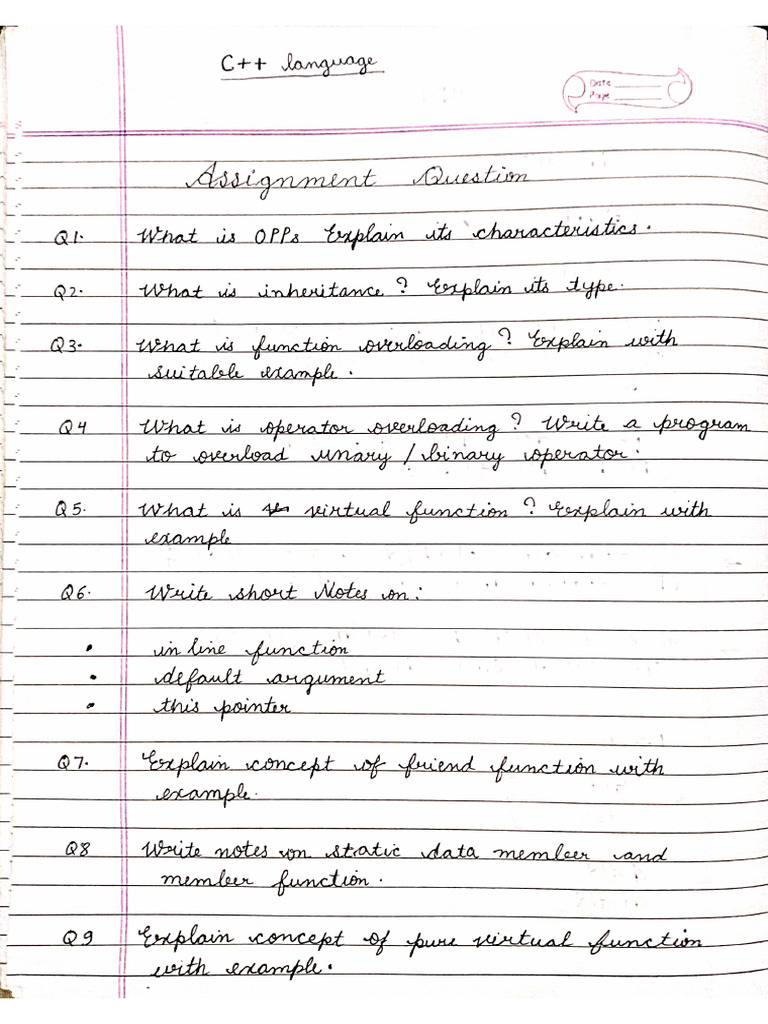 C++ language
Date
Page
Assignment Question
Q1. What is OPPs Explain its characteristics.
Q2. What is inheritance? Explain its type.
Q3. What is function overloading? Explain with
suitable example.
Q4 What is operator overloading? Write a program
to overload unary / binary operator.
Q5. What is virtual function? Explain with
example
Q6. Write short Notes on:
• in line function
• default argument
• this pointer
Q7. Explain concept of friend function with
example.
Q8 Write notes on static data member and
member function.
Q9 Explain concept of pure virtual function
with example.